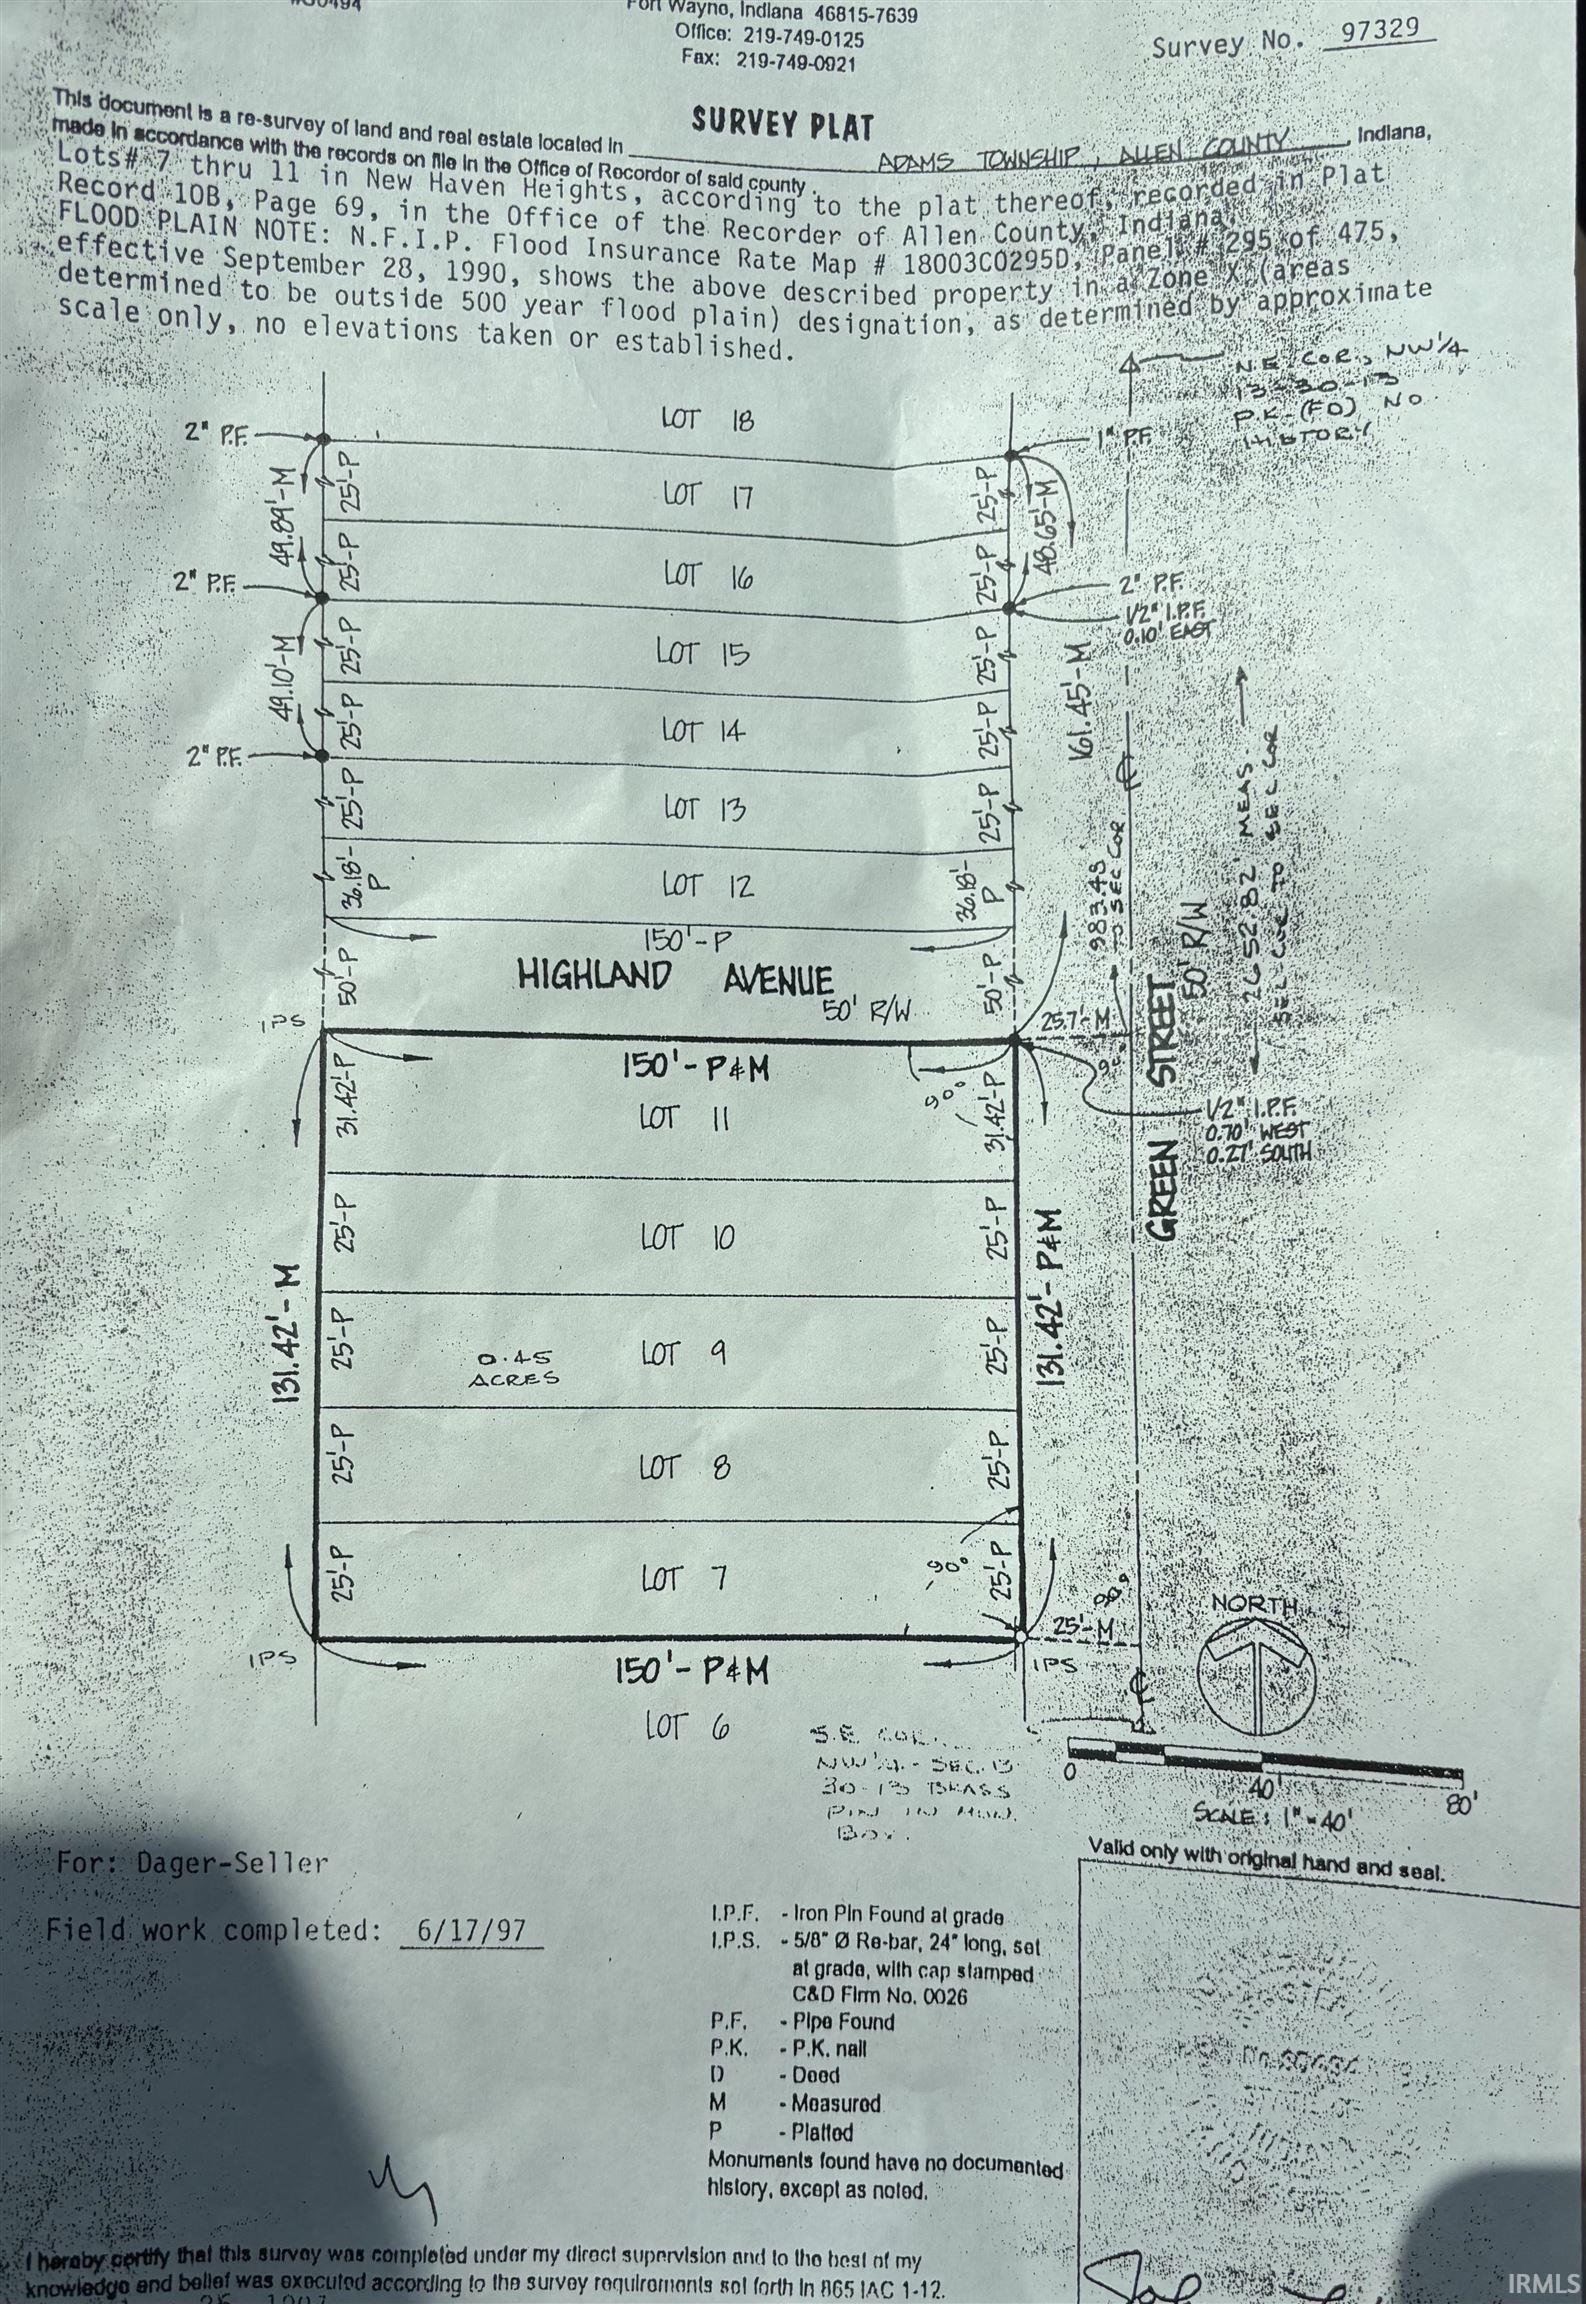 #S0494
Fort Wayne, Indiana 46815-7639
Office: 219-749-0125
Fax: 219-749-0921
Survey No. 97329
SURVEY PLAT
This document is a re-survey of land and real estate located in ADAMS TOWNSHIP, ALLEN COUNTY, Indiana,
made in accordance with the records on file in the Office of Recorder of said county.
Lots# 7 thru 11 in New Haven Heights, according to the plat thereof, recorded in Plat
Record 10B, Page 69, in the Office of the Recorder of Allen County, Indiana.
FLOOD PLAIN NOTE: N.F.I.P. Flood Insurance Rate Map # 18003C0295D, Panel # 295 of 475,
effective September 28, 1990, shows the above described property in a Zone X (areas
determined to be outside 500 year flood plain) designation, as determined by approximate
scale only, no elevations taken or established.
N.E. COR., NW 1/4
13-30-13
P.K. (FD) NO
HISTORY
LOT 18
2" P.F.
1" P.F.
49.89'-M
25'-P
LOT 17
25'-P
48.65'-M
25'-P
LOT 16
25'-P
2" P.F.
2" P.F.
1/2" I.P.F.
0.10' EAST
49.10'-M
25'-P
LOT 15
25'-P
161.45'-M
25'-P
LOT 14
25'-P
2" P.F.
25'-P
LOT 13
25'-P
36.18'-P
LOT 12
36.18'-P
983.48
TO SEC COR
2652.82' MEAS.
SEC COR TO SEC COR
150'-P
50'-P
HIGHLAND AVENUE
50' R/W
50'-P
GREEN STREET
50' R/W
IPS
25.7'-M
90°
150'-P&M
31.42'-P
LOT 11
90°
31.42'-P
1/2" I.P.F.
0.70' WEST
0.27' SOUTH
25'-P
LOT 10
25'-P
131.42'-M
131.42'-P&M
25'-P
0.45
ACRES
LOT 9
25'-P
25'-P
LOT 8
25'-P
25'-P
LOT 7
90°
25'-P
90°
25'-M
NORTH
IPS
150'-P&M
IPS
LOT 6
S.E. COR.
NW 1/4 - SEC. 13
30-13 BRASS
PIN IN MON.
BOX.
0
40'
80'
SCALE: 1"=40'
Valid only with original hand and seal.
For: Dager-Seller
Field work completed: 6/17/97
I.P.F. - Iron Pin Found at grade
I.P.S. - 5/8" Ø Re-bar, 24" long, set
at grade, with cap stamped
C&D Firm No. 0026
P.F. - Pipe Found
P.K. - P.K. nail
D - Deed
M - Measured
P - Platted
Monuments found have no documented
history, except as noted.
I hereby certify that this survey was completed under my direct supervision and to the best of my
knowledge and belief was executed according to the survey requirements set forth in 865 IAC 1-12.
IRMLS